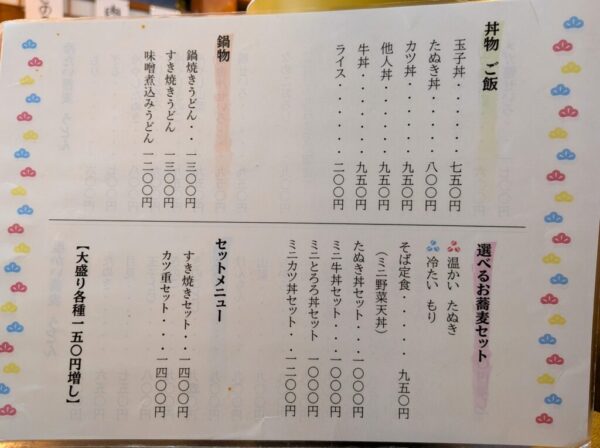 丼物 ご飯
玉子丼・・・・・・七五〇円
たぬき丼・・・・・八〇〇円
カツ丼・・・・・・九五〇円
他人丼・・・・・・九五〇円
牛丼・・・・・・・九五〇円
ライス・・・・・・二〇〇円
鍋物
鍋焼きうどん・・・一三〇〇円
すき焼きうどん・・一三〇〇円
味噌煮込みうどん 一二〇〇円
選べるお蕎麦セット
温かい たぬき
冷たい もり
そば定食・・・・・九五〇円
（ミニ野菜天丼）
たぬき丼セット・・・一〇〇〇円
ミニ牛丼セット・・・一〇〇〇円
ミニとろろ丼セット 一〇〇〇円
ミニカツ丼セット・・一二〇〇円
セットメニュー
すき焼きセット・・・一四〇〇円
カツ重セット・・・・一四〇〇円
【大盛り各種一五〇円増し】